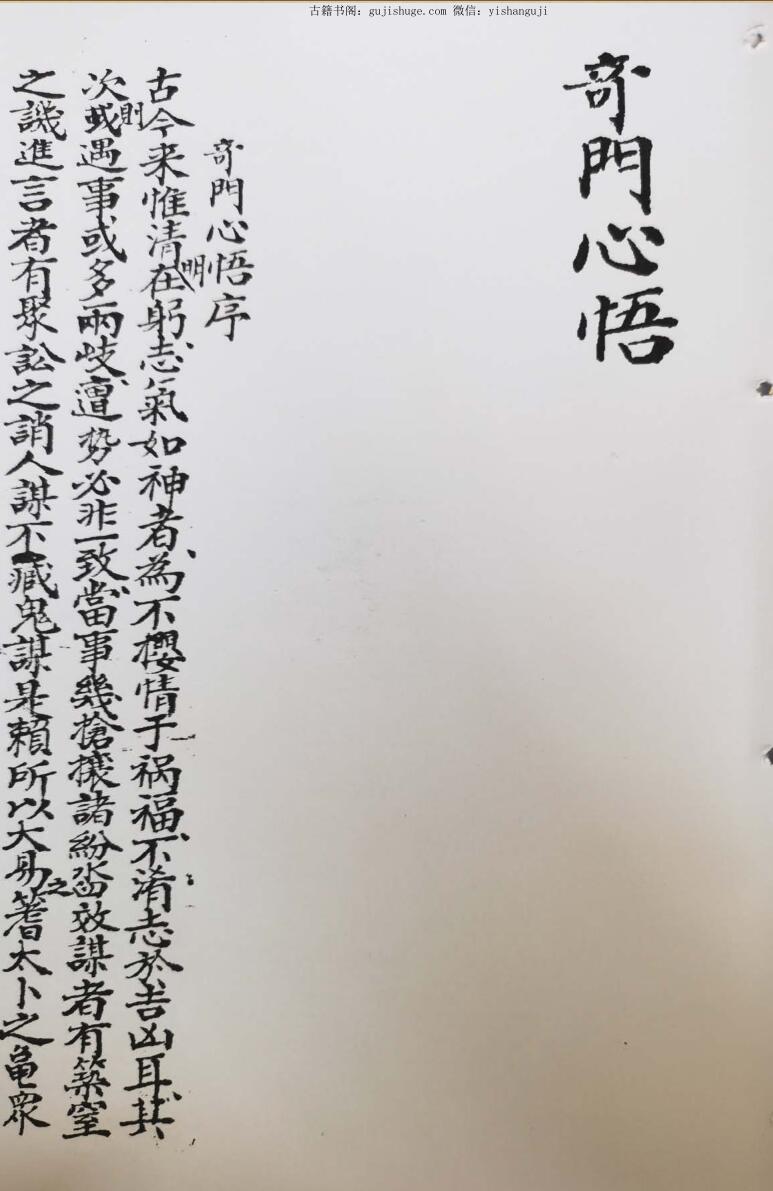 古籍书阁：gujishuge.com 微信：yishanguji
奇門心悟
奇門心悟序
古今来惟清明在躬志氣如神者為不櫻情于祸福不淆志於吉凶耳其
次則或遇事或多兩岐遭势必非一致當事幾搶攘諸紛沓效謀者有築室
之譏進言者有聚訟之誚人謀不臧鬼謀是賴所以大易之蓍太卜之龜眾